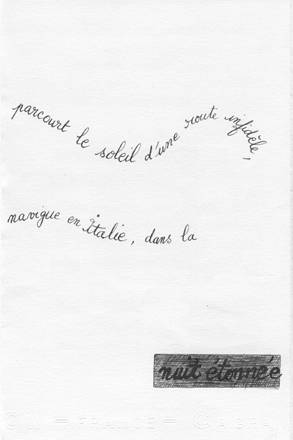 parcourt le soleil d'une route infidèle,
navigue en Italie, dans la
nuit étonnée